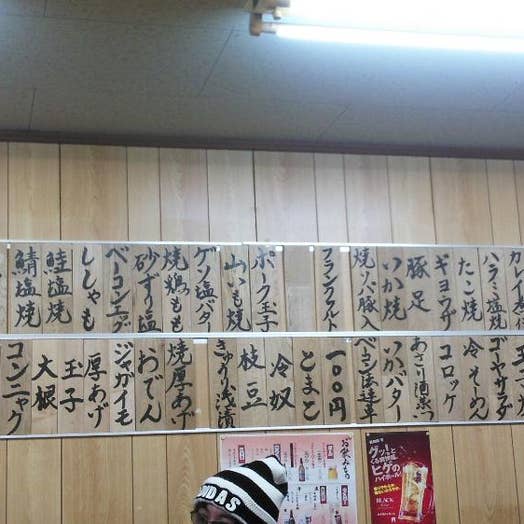 ハラミ塩焼
たこ焼
ギョウザ
豚足
いか焼
焼ソバ豚入
フランクルト
ポーク玉子
山いも焼
ゲソ塩バター
焼鶏もも
砂ずり塩
ベーコンエッグ
ししゃも
鮭塩焼
鯖塩焼
ゴーヤサラダ
冷そーめん
コロッケ
あさり酒蒸し
いかバター
ベーコン法連草
一〇〇円
とまと
冷奴
枝豆
きゅうり浅漬
焼厚あげ
おでん
ジャガイモ
厚あげ
玉子
大根
コンニャク
お飲みもの
グッ!と
くる爽快感
ヒゲの
ハイボール!
BLACK
DAS